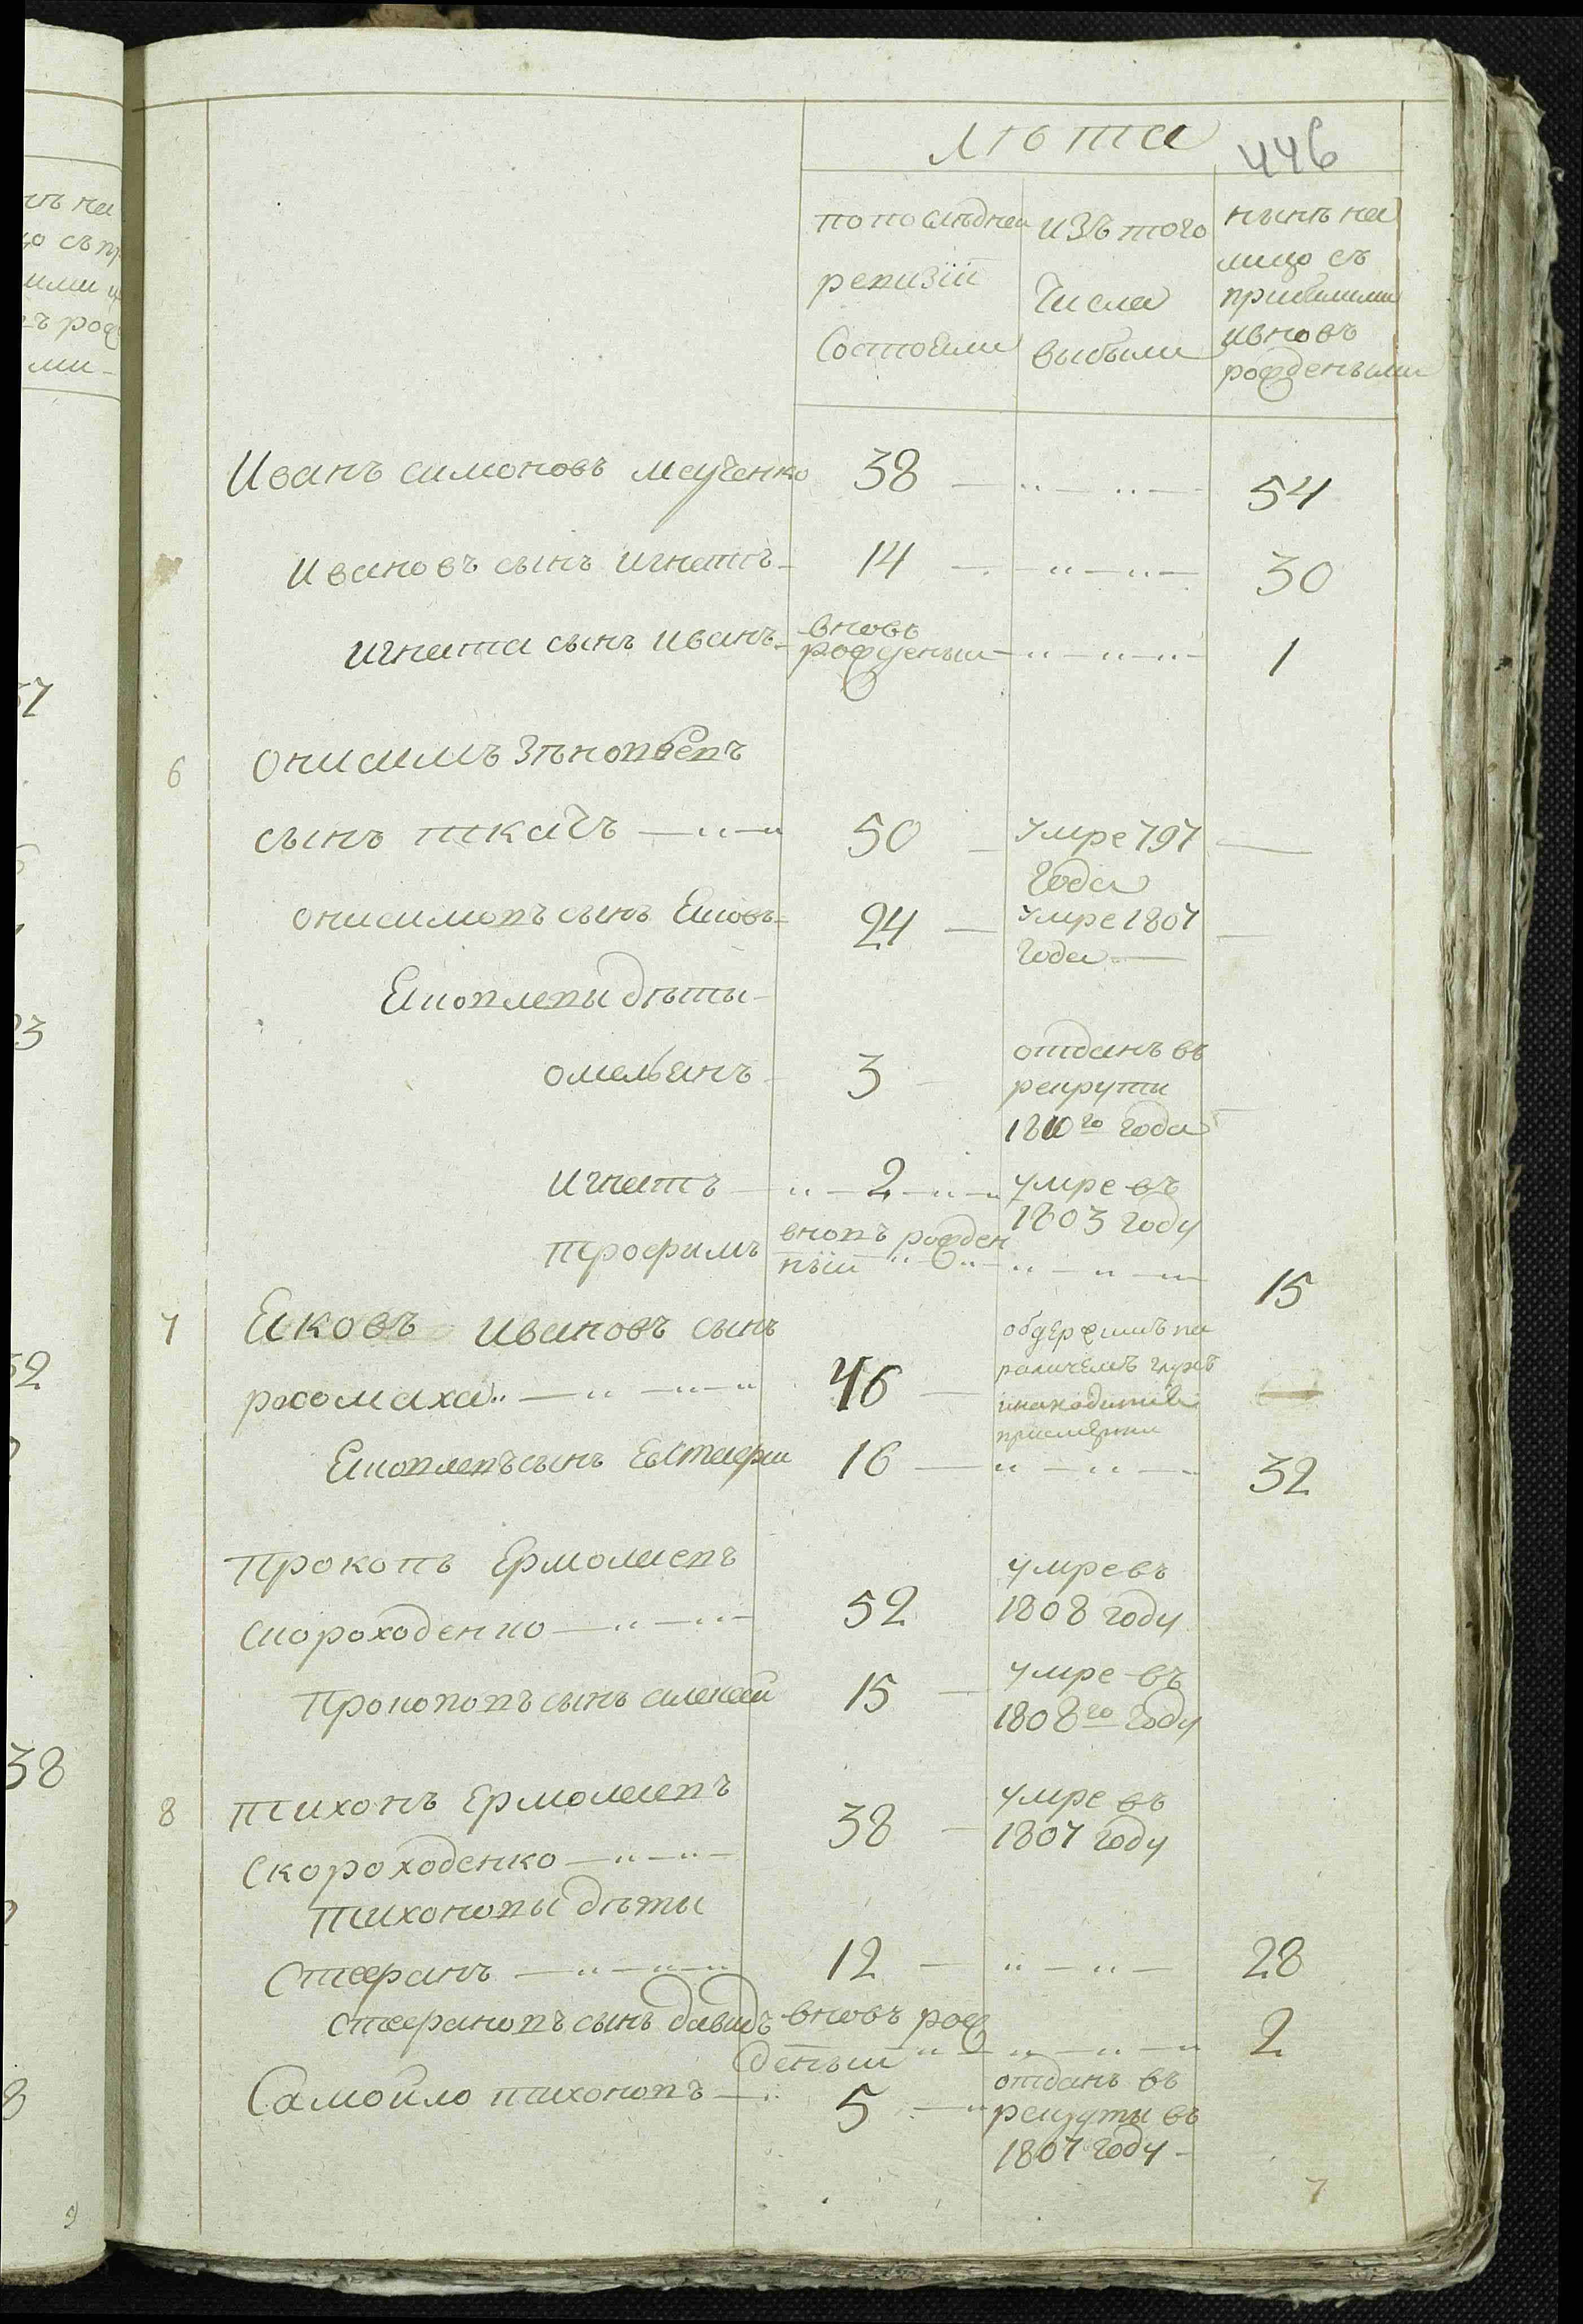 лѣта
446
попоследнеи
ревизіи
Состояли
изъ того
Числа
выбыли
нынѣ на
лицо съ
прибилими
ивновъ
рождеными
Иванъ симоновъ 38 54
Ивановъ сынъ игнатъ 14 30
игната сынъ иванъ вновь рожденыи 1
6 Онисимъ Зѣновѣевъ
сынъ ткачъ 50 умре 797
года
онисимовъ сынъ Яковъ 24 умре 1807
года
Яковлевы дѣти
омельянъ 3 отданъ въ
рекруты
1810го года
игнатъ 2 умре въ
1803 году
трофимъ вновъ рожден
ныи 15
7 Яковъ ивановъ сынъ
росомаха 46
Яковлевъ сынъ Евстафи 16 32
прокопъ Ермолаевъ
скороходенко 52 умре въ
1808 году
Прокоповъ сынъ алексеи 15 умре въ
1808го году
8 тихонъ Ермолаевъ 38 умре въ
1807 году
Скороходенко
тихоновы дѣты
Стефанъ 12 28
стефановъ сынъ давидъ вновъ рож
деныи 2
Самоило тихоновъ 5 отданъ въ
рекруты въ
1807 году
7